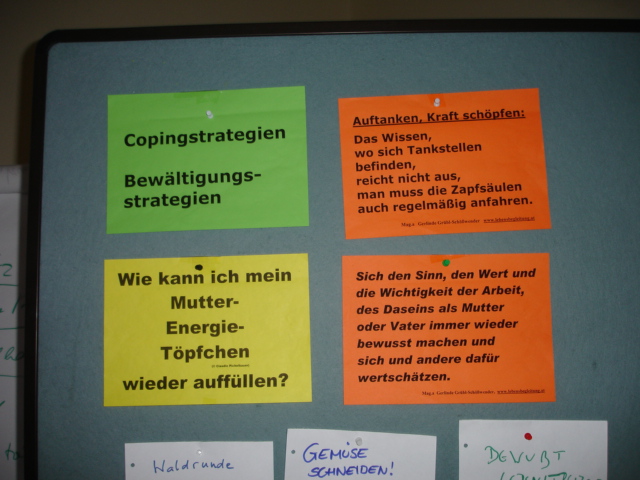 Copingstrategien
Bewältigungs-
strategien
Auftanken, Kraft schöpfen:
Das Wissen,
wo sich Tankstellen
befinden,
reicht nicht aus,
man muss die Zapfsäulen
auch regelmäßig anfahren.
Wie kann ich mein
Mutter-
Energie-
Töpfchen
wieder auffüllen?
Sich den Sinn, den Wert und
die Wichtigkeit der Arbeit,
des Daseins als Mutter
oder Vater immer wieder
bewusst machen und
sich und andere dafür
wertschätzen.
Waldrunde
GEMÜSE
SCHNEIDEN!
BEWUßT